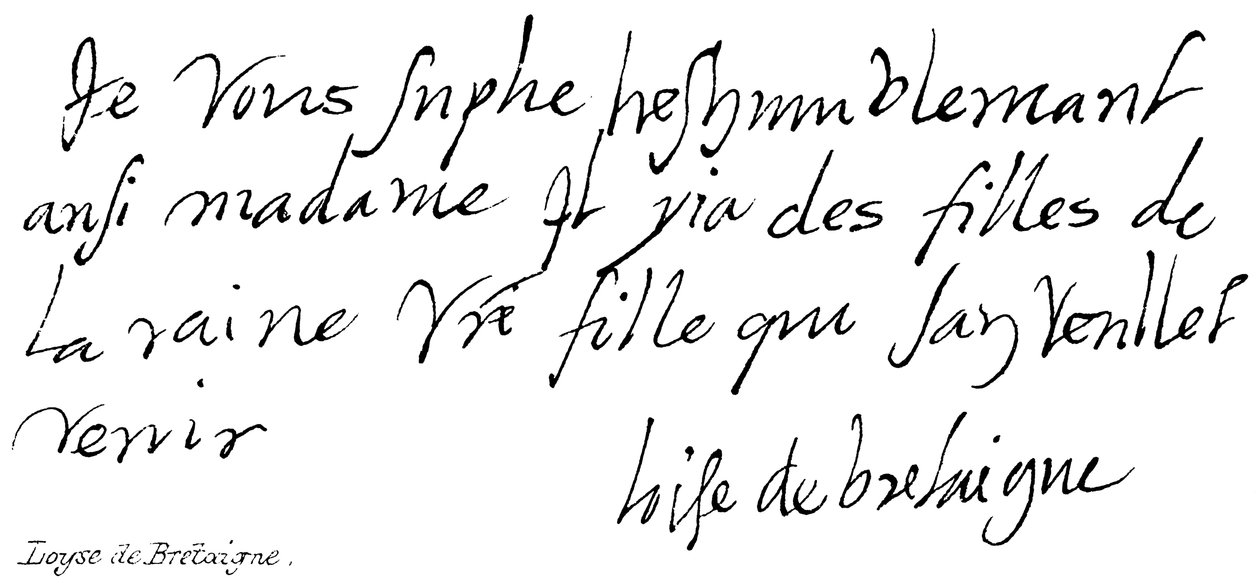 Je vous suplie treshumblemant
ansi madame Il via des filles de
La raine vre fille qui san venllet
venir
loise de bretaigne
Loyse de Bretaigne.